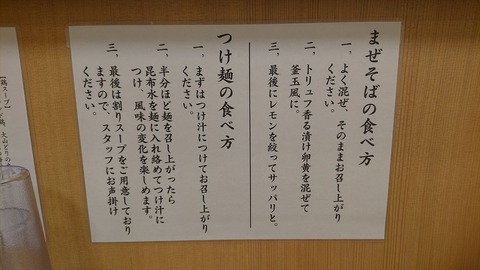 まぜそばの食べ方
一、よく混ぜ、そのままお召し上がり
ください。
二、トリュフ香る漬け卵黄を混ぜて
釜玉風に。
三、最後にレモンを絞ってサッパリと。
つけ麺の食べ方
一、まずはつけ汁につけてお召し上がり
ください。
二、半分ほど麺を召し上がったら
昆布水を麺に入れ絡めてつけ汁に
つけ、風味の変化を楽しめます。
三、最後は割りスープをご用意しており
ますので、スタッフにお声掛け
ください。